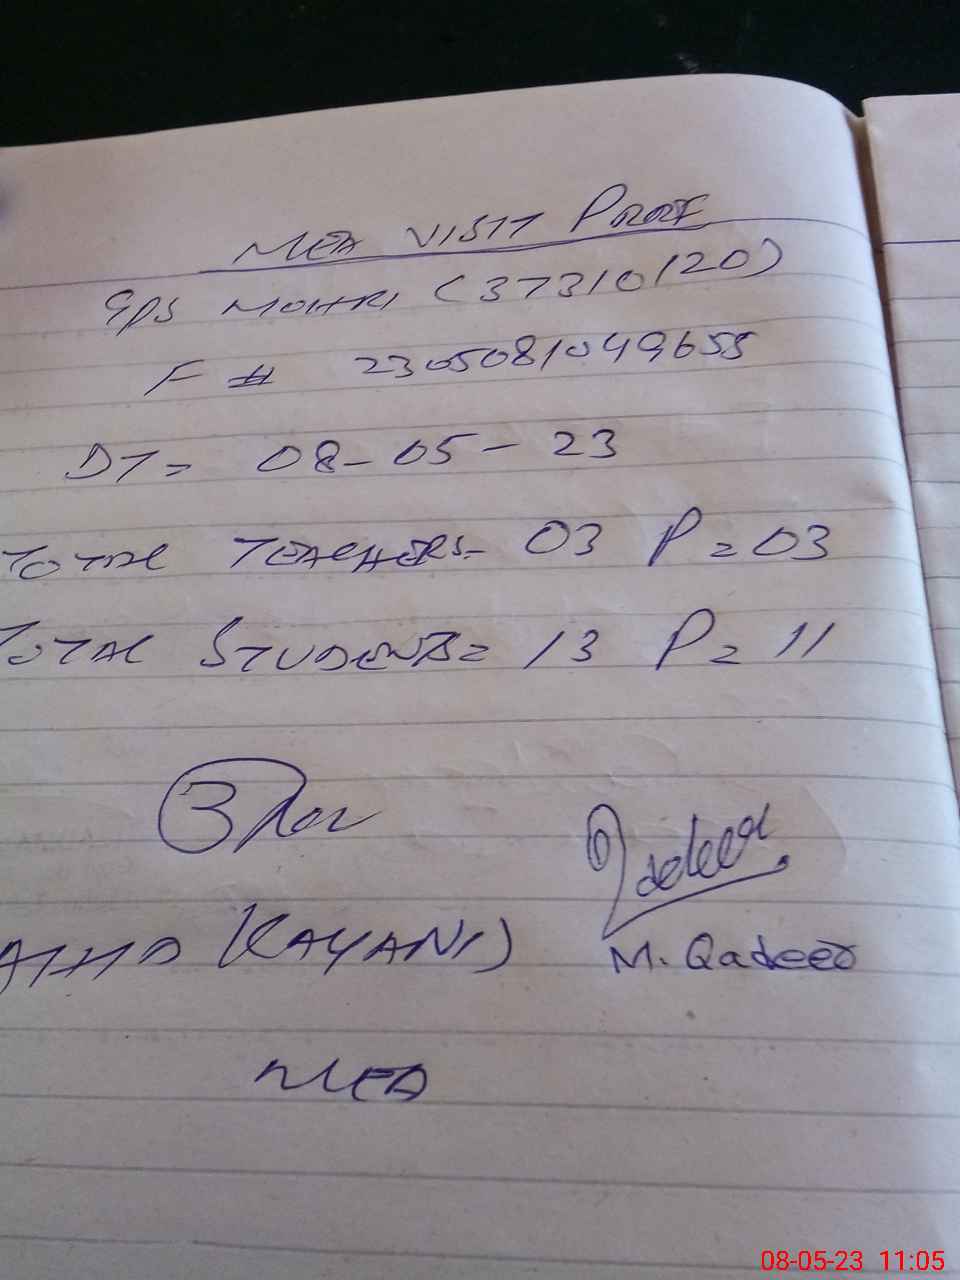 MEA VISIT PROOF
GPS MOHRI (37310120)
F # 2305081049655
DT= 08-05-23
TOTAL TEACHERS= 03 P=03
TOTAL STUDENTS= 13 P=11
Qadeer
(KAYANI)
M. Qadeer
MEA
08-05-23 11:05